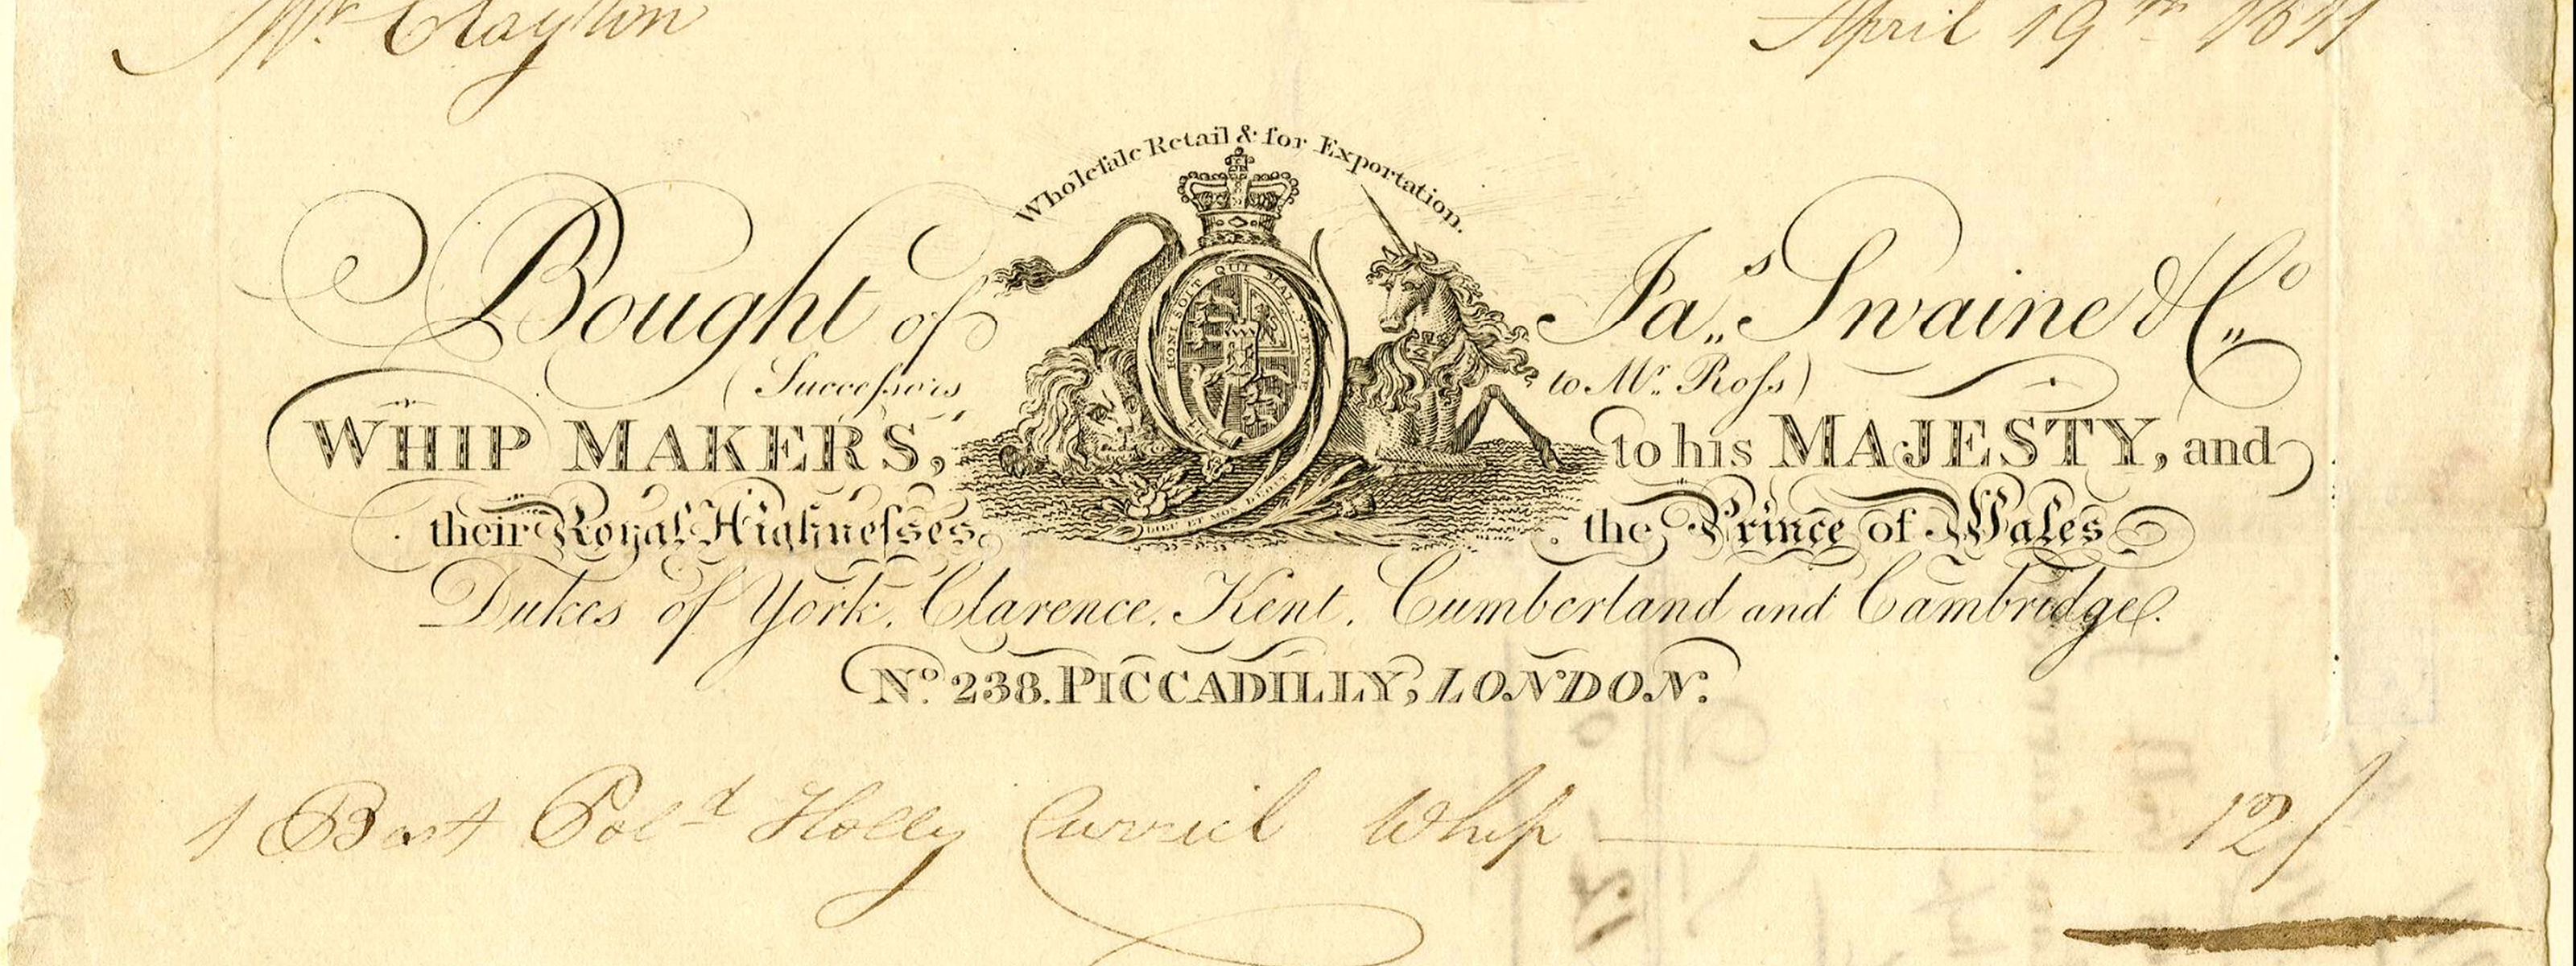 Mr. Clayton April 19th 1811
Wholeſale Retail & for Exportation.
Bought of Jas Swaine & Co
(Succeſsors to Mr. Roſs)
WHIP MAKERS, to his MAJESTY, and
their Royal Highneſses, the Prince of Wales
Dukes of York, Clarence, Kent, Cumberland and Cambridge.
No. 238. PICCADILLY, LONDON.
HONI SOIT QUI MAL Y PENSE
DIEU ET MON DROIT
1 Best Cold Holly Curricl Whip 12/